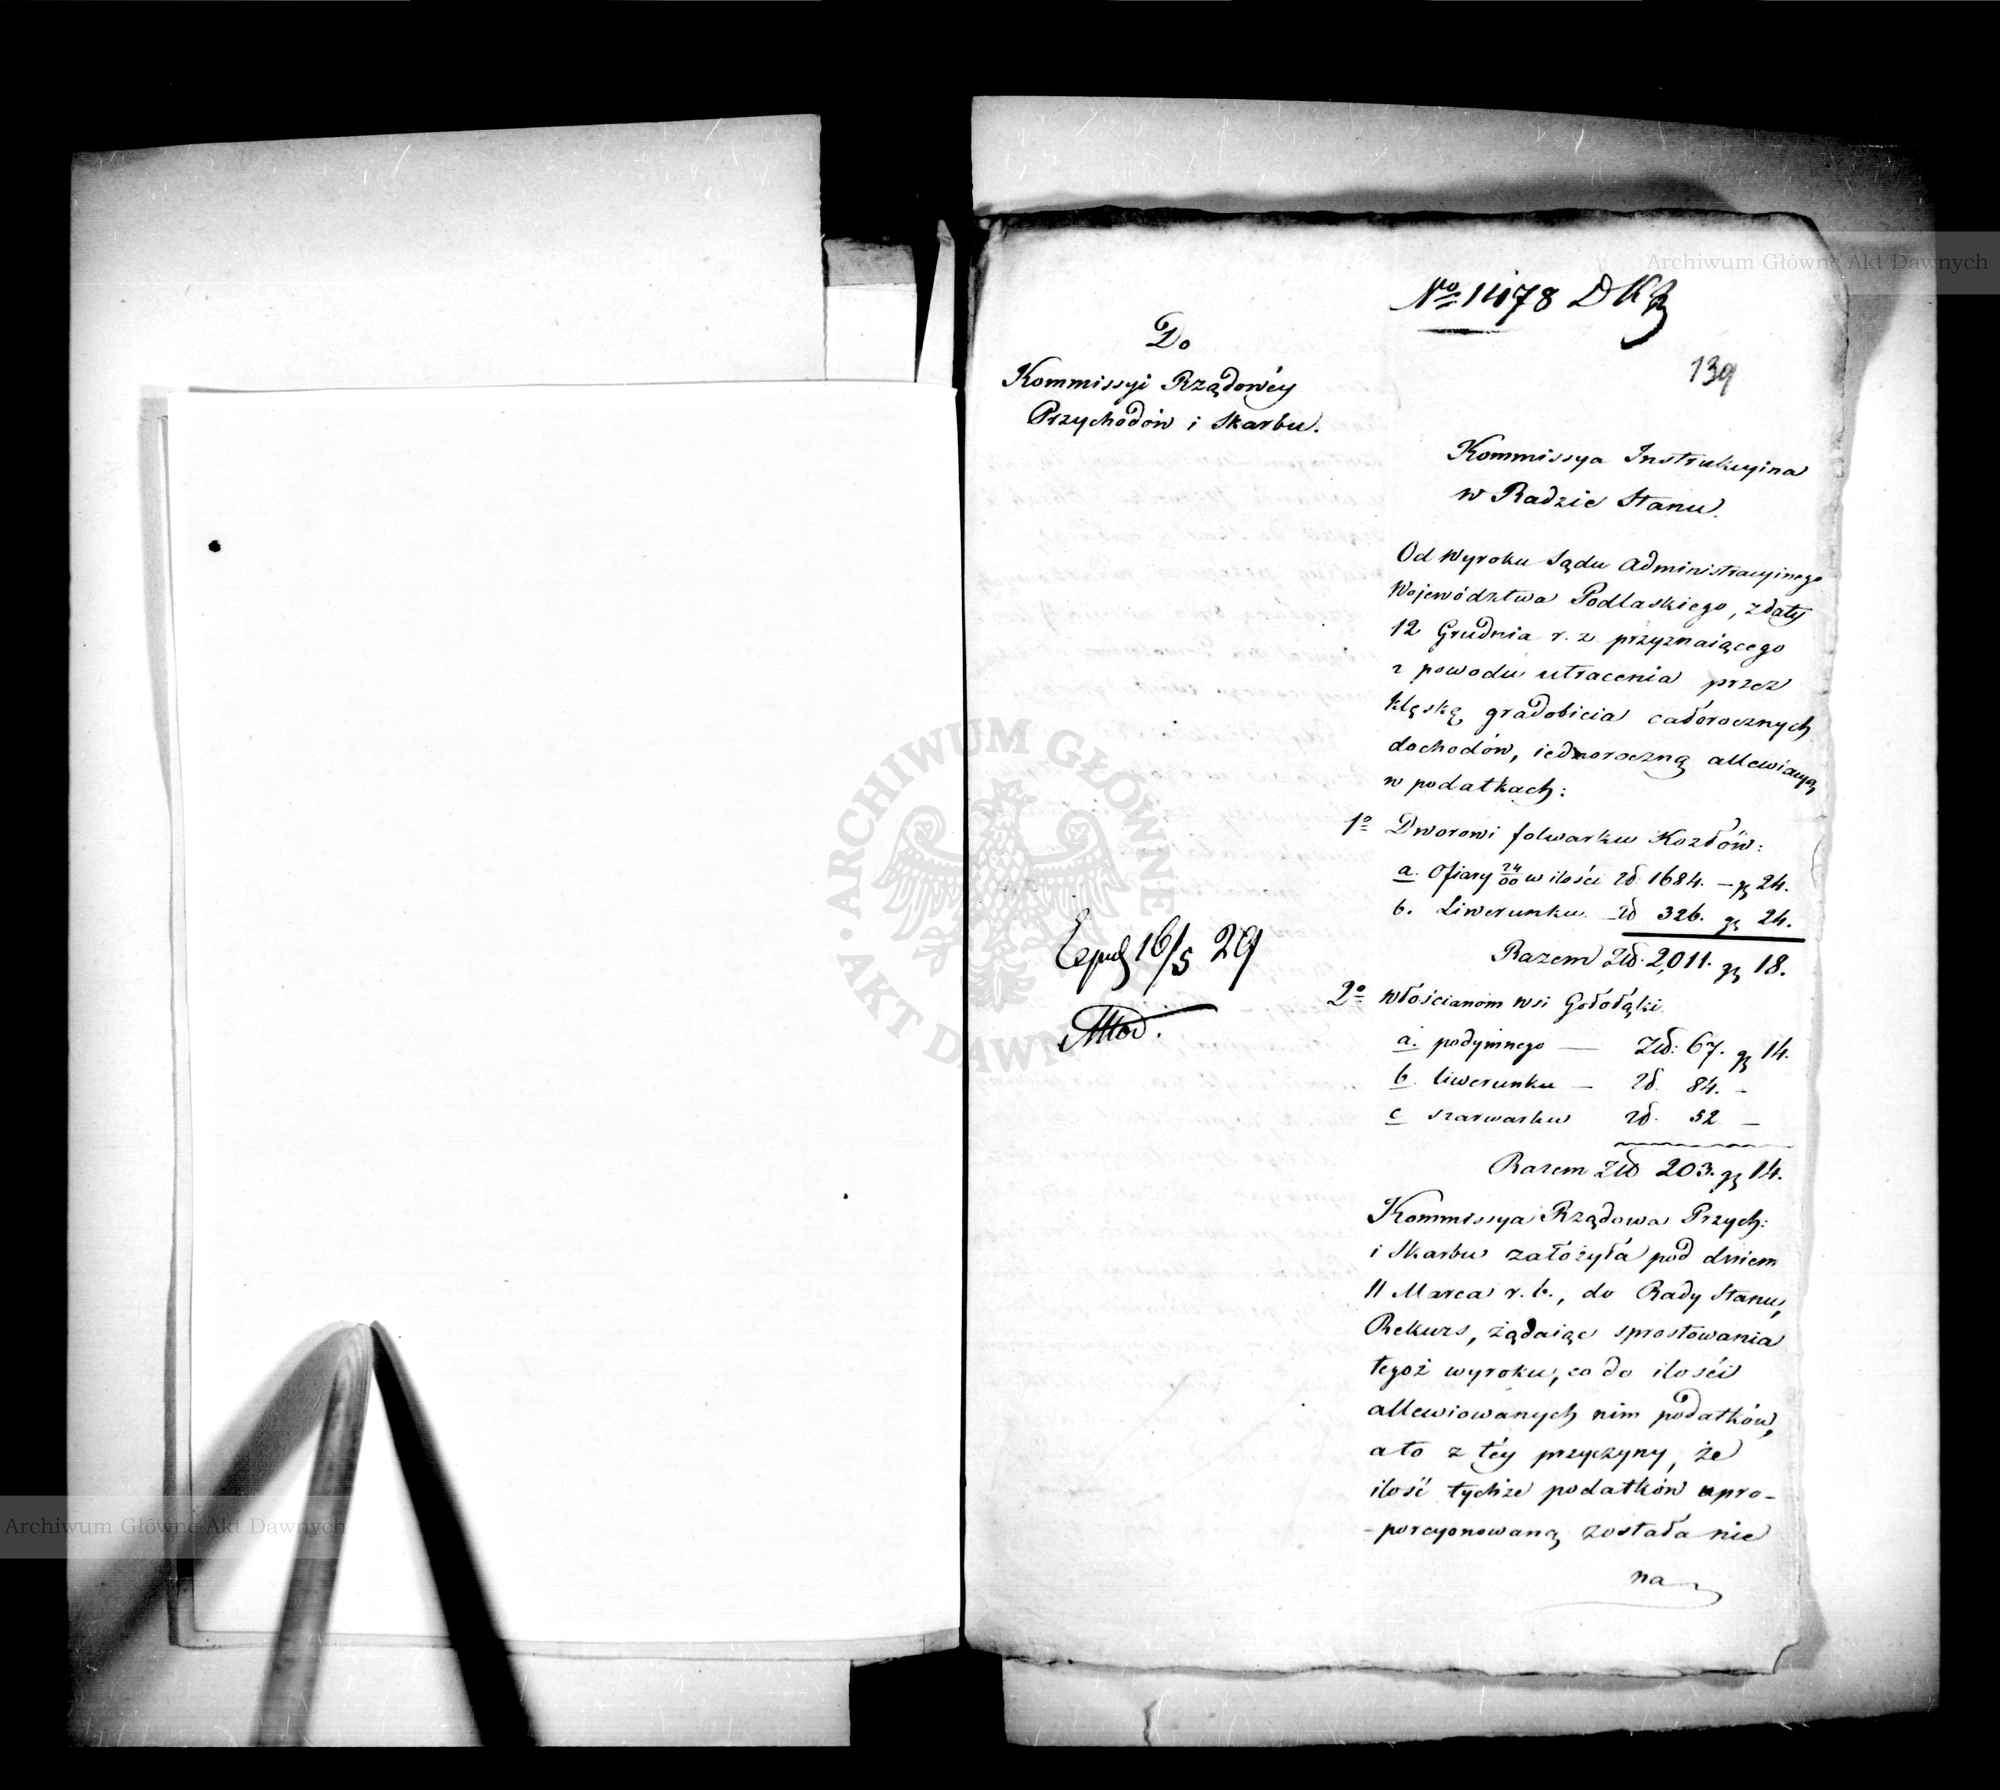 Archiwum Główne Akt Dawnych
No 11478 DKP
139
Do
Kommissyi Rządowéy
Przychodów i Skarbu.
Kommissya Instrukcyina
w Radzie Stanu.
Od Wyroku Sądu Administracyinego
Województwa Podlaskiego, z daty
12 Grudnia r. z przyznaiącego
z powodu utracenia przez
klęskę gradobicia całorocznych
dochodów, iednoroczną allewiacyą
w podatkach:
1o Dworowi folwarku Kozłów:
a. Ofiary 24/00 w ilości zł. 1684. – gr 24.
b. Liwerunku – zł 326. gr 24.
Razem Zł. 2,011. gr 18.
2o włościanom wsi Gołołąki.
a. podymnego — Zł: 67. gr 14.
b. liwerunku — zł. 84. –
c szarwarku zł. 52 –
Razem Zł 203. gr 14.
Kommissya Rządowa Przych:
i Skarbu założyła pod dniem
11 Marca r. b., do Rady Stanu,
Rekurs, żądaiąc sprostowania
tegoż wyroku, co do ilości
allewiowanych nim podatków,
a to z téy przyczyny, że
ilość tychże podatków upro-
-porcyonowaną została nie
na
16/5 29
ARCHIWUM GŁÓWNE AKT DAWNYCH
Archiwum Główne Akt Dawnych